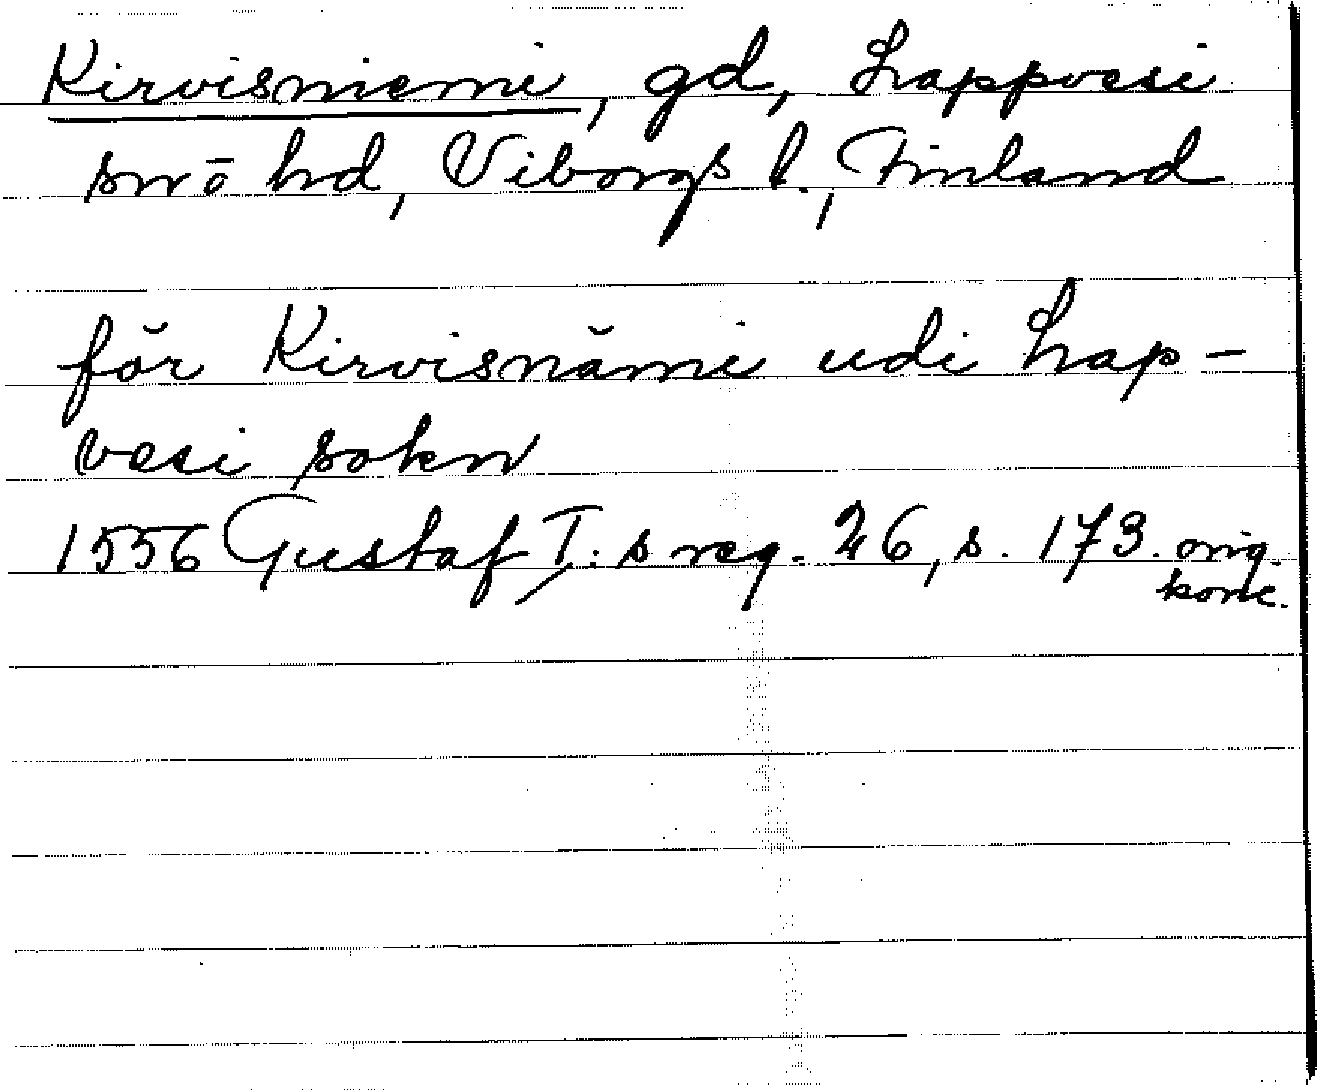 Kirvisniemi, gd, Lappvesi
sn o hd, Viborgs l., Finland
för Kirvisnämi udi Lap-
vesi sokn
1556 Gustaf I:s reg. 26, s. 173. orig.
konc.